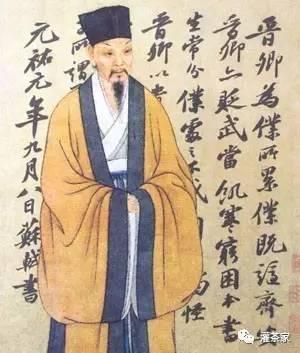 晉卿為僕所累僕既謫齊
晉卿亦貶武當飢寒窮困本書
生常分僕處之不戚 怪
晉卿以貴
所謂
元祐元年九月八日蘇軾書
灌茶家